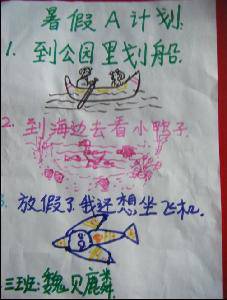 暑假A计划
1. 到公园里划船.
2. 到海边去看小鸭子.
3. 放假了我还想坐飞机.
三班:魏贝麟